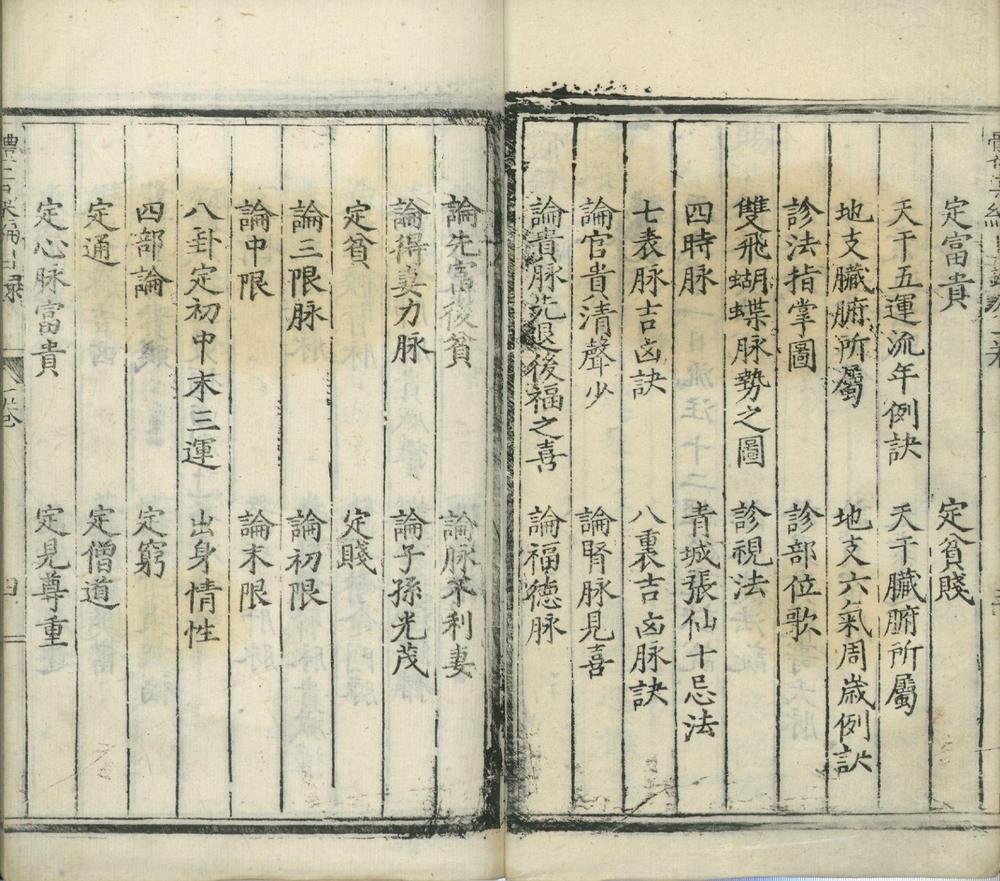 定富貴 定貧賤
天干五運流年例訣 天干臟腑所屬
地支臟腑所屬 地支六氣周歲例訣
診法指掌圖 診部位歌
雙飛蝴蝶脉勢之圖 診視法
四時脉 青城張仙十忌法
七表脉吉凶訣 八裏吉凶脉訣
論官貴清聲少 論腎脉見喜
論貴脉先退後福之喜 論福德脉
論先富後貧 論脉不利妻
論得妻力脉 論子孫光茂
定貧 定賤
論三限脉 論初限
論中限 論末限
八卦定初中末三運 出身情性
四部論 定窮
定通 定僧道
定心脉富貴 定見尊重